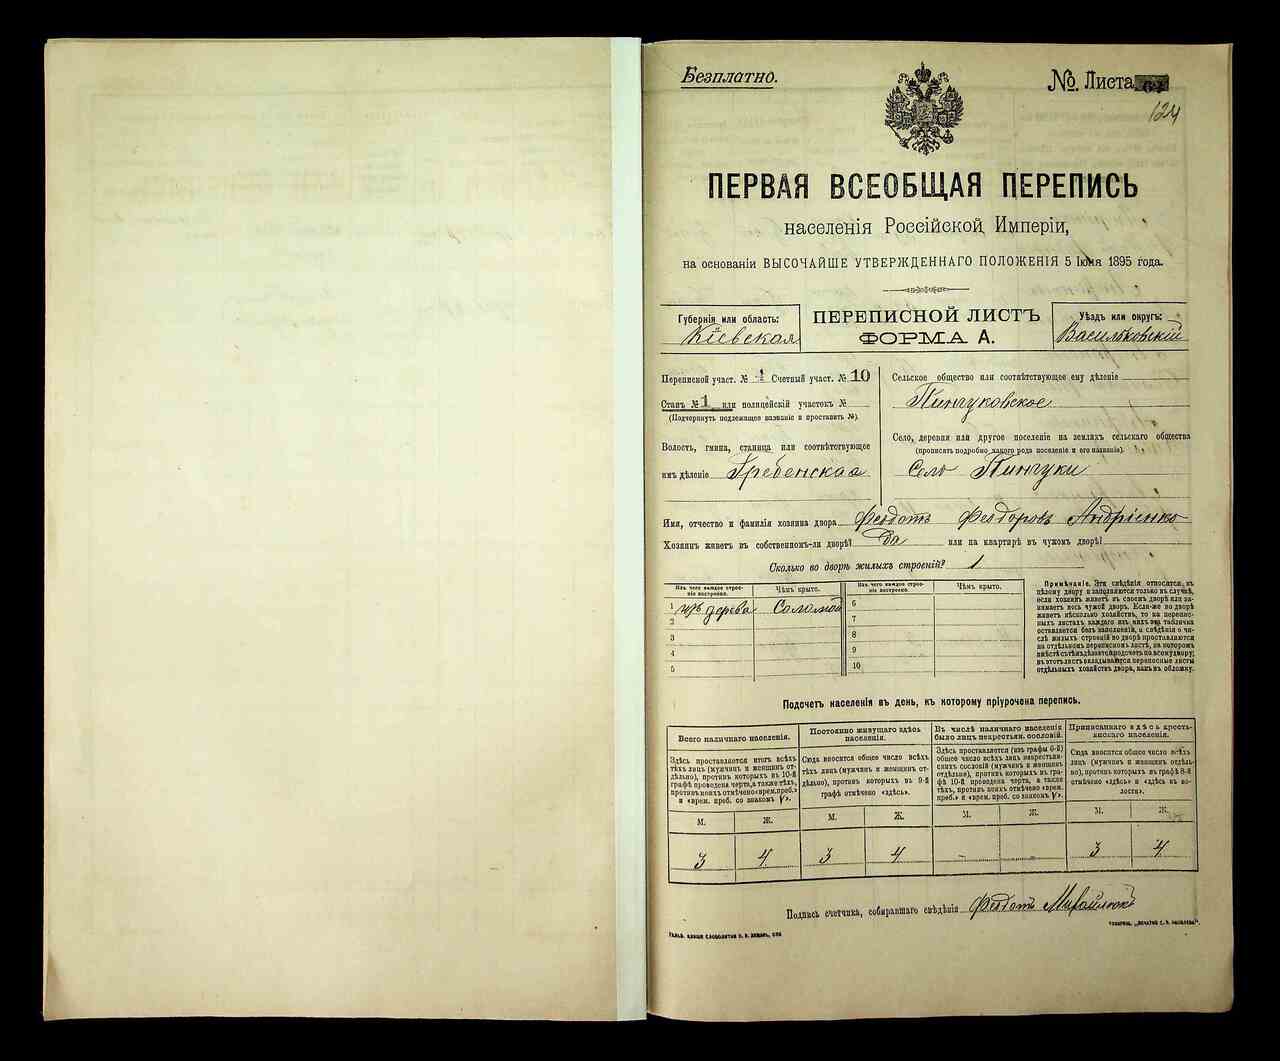 Безплатно.
№ Листа 64
124
ПЕРВАЯ ВСЕОБЩАЯ ПЕРЕПИСЬ
населенія Россійской Имперіи,
на основаніи ВЫСОЧАЙШЕ УТВЕРЖДЕННАГО ПОЛОЖЕНІЯ 5 Іюня 1895 года.
Губернія или область:
Кіевская
ПЕРЕПИСНОЙ ЛИСТЪ
ФОРМА А.
Уѣздъ или округъ:
Васильковскій
Переписной участ. № 1 Счетный участ. № 10
Станъ № 1 или полицейскій участокъ №
(Подчеркнуть подлежащее названіе и проставить №).
Волость, гмина, станица или соотвѣтствующее
имъ дѣленіе Гребенская
Сельское общество или соотвѣтствующее ему дѣленіе
Пинчуковское
Село, деревня или другое поселеніе на земляхъ сельскаго общества
(прописать подробно какого рода поселеніе и его названіе).
Село Пинчуки
Имя, отчество и фамилія хозяина двора Феодотъ Феодоровъ Андріенко
Хозяинъ живетъ въ собственномъ-ли дворѣ? Да или на квартирѣ въ чужомъ дворѣ?
Сколько во дворѣ жилыхъ строеній? 1
Изъ чего каждое строеніе построено.
Чѣмъ крыто.
Изъ чего каждое строеніе построено.
Чѣмъ крыто.
1 изъ дерева Соломой 6
2 7
3 8
4 9
5 10
Примѣчаніе. Эти свѣдѣнія относятся къ
цѣлому двору и заполняются только въ случаѣ,
если хозяинъ живетъ въ своемъ дворѣ или занимаетъ
весь чужой дворъ. Если-же во дворѣ
живетъ нѣсколько хозяйствъ, то на переписныхъ
листахъ каждаго изъ нихъ эта табличка
оставляется безъ заполненій, а свѣдѣнія о числѣ
жилыхъ строеній во дворѣ проставляются
на отдѣльномъ переписномъ листѣ, на которомъ
вмѣстѣ съ тѣмъ дѣлается подсчетъ по всему двору;
въ этотъ листъ вкладываются переписные листы
отдѣльныхъ хозяйствъ двора, какъ въ обложку.
Подсчетъ населенія въ день, къ которому пріурочена перепись.
Всего наличнаго населенія.
Постоянно живущаго здѣсь населенія.
Въ числѣ наличнаго населенія было лицъ некрестьян. сословій.
Приписаннаго здѣсь крестьянскаго населенія.
Здѣсь проставляется итогъ всѣхъ
тѣхъ лицъ (мужчинъ и женщинъ отдѣльно),
противъ которыхъ въ 10-й
графѣ проведена черта, а также тѣхъ,
противъ коихъ отмѣчено «врем. преб.»
и «врем. преб. со знакомъ V».
Сюда вносится общее число всѣхъ
тѣхъ лицъ (мужчинъ и женщинъ отдѣльно),
противъ которыхъ въ 9-й
графѣ отмѣчено «здѣсь».
Здѣсь проставляется (изъ графы 6-й)
общее число всѣхъ некрестьянскихъ
сословій (мужчинъ и женщинъ
отдѣльно), противъ которыхъ въ графѣ
10-й проведена черта, а также
тѣхъ, противъ коихъ отмѣчено «врем.
преб.» и «врем. преб. со знакомъ V».
Сюда вносится общее число всѣхъ
лицъ (мужчинъ и женщинъ отдѣльно),
противъ которыхъ въ графѣ 8-й
отмѣчено «здѣсь» и «здѣсь въ волости».
М. Ж. М. Ж. М. Ж. М. Ж.
3 4 3 4 - - 3 4
Подпись счетчика, собиравшаго свѣдѣнія Феодотъ Михайлюкъ